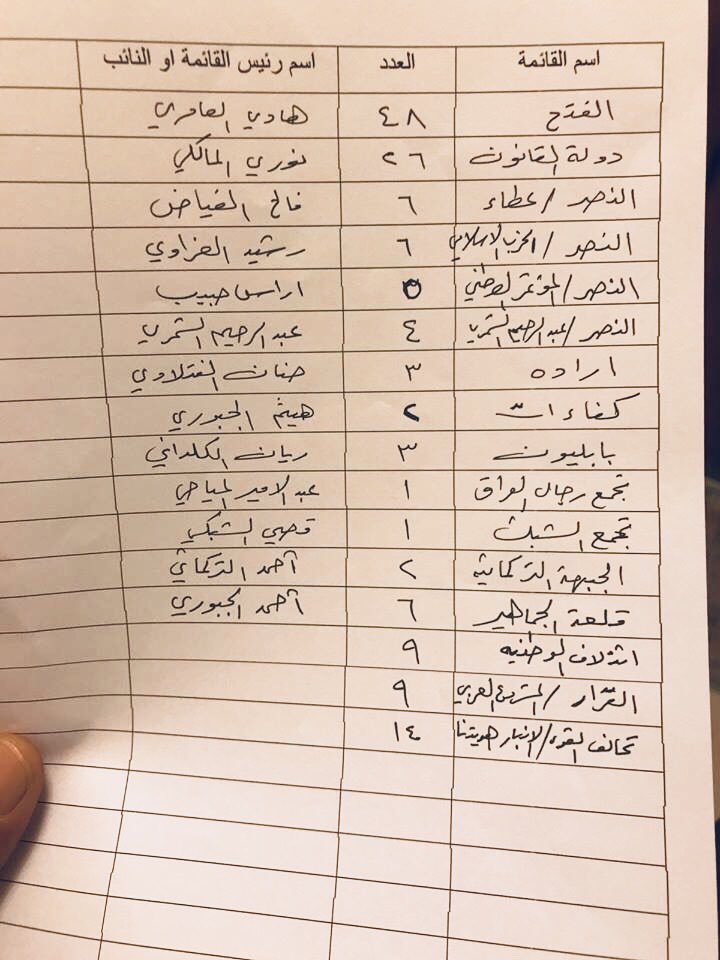 اسم القائمة العدد اسم رئيس القائمة او النائب
الفتح ٤٨ هادي العامري
دولة القانون ٢٦ نوري المالكي
النصر / عطاء ٦ فالح الفياض
النصر / الحزب الاسلامي ٦ رشيد العزاوي
النصر / المؤتمر الوطني ٣ اراس حبيب
النصر / عبد الرحيم الشمري ٤ عبد الرحيم الشمري
اراده ٣ حنان الفتلاوي
كفاءات ٢ هيثم الجبوري
بابليون ٣ ريان الكلداني
تجمع رجال العراق ١ عبد الامير المياحي
تجمع الشبك ١ قصي الشبكي
الجبهة التركمانية ٢ احمد التركماني
قلعة الجماهير ٦ احمد الجبوري
ائتلاف الوطنيه ٩
القرار / المشروع العربي ٩
تحالف القوى / الانبار هويتنا ١٤